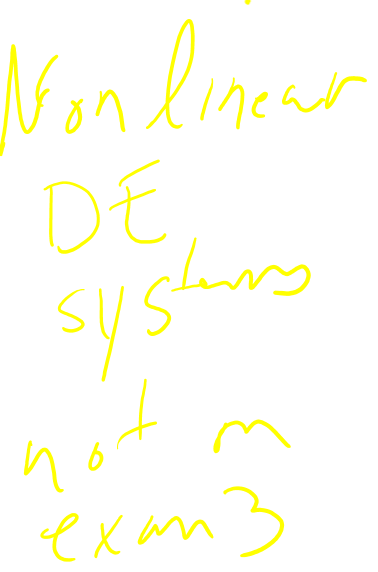 Nonlinear
DE
systems
not on
exam 3